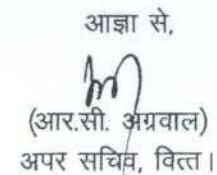 आज्ञा से,
(आर.सी. अग्रवाल)
अपर सचिव, वित्त।